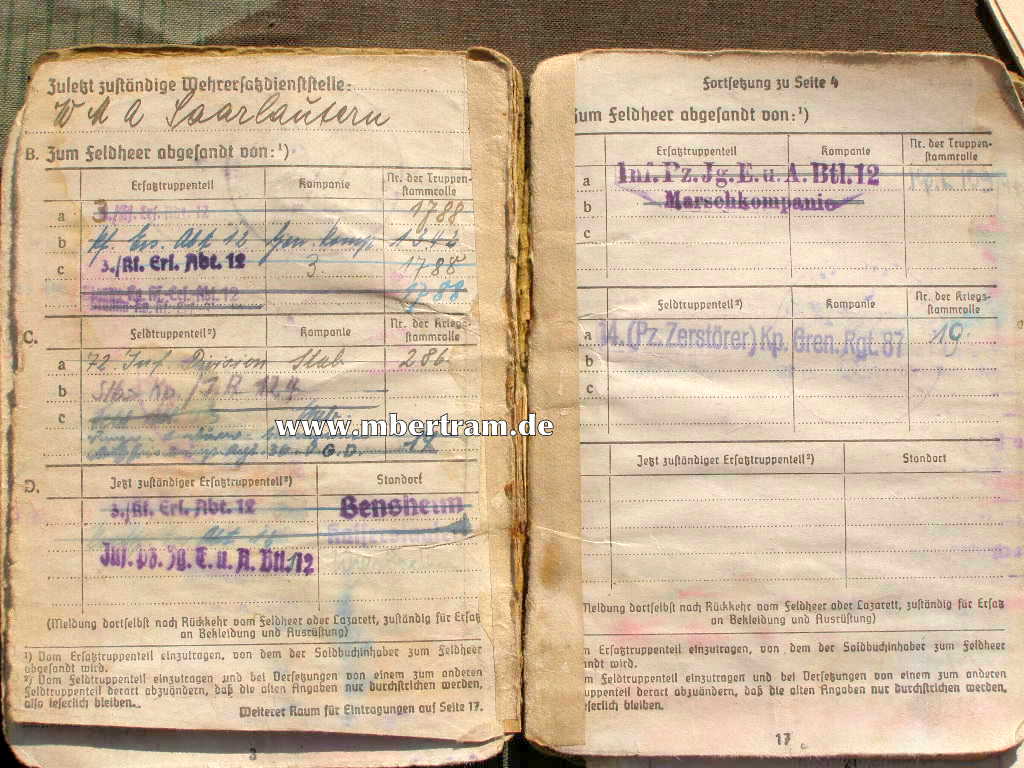 Zuletzt zuständige Wehrersatzdienststelle:
W M A Saarlautern
B. Zum Feldheer abgesandt von:¹)
Ersatztruppenteil Kompanie Nr. der Truppen-stammrolle
a 3./Kf. Ers. Abt. 12 1788
b Kf. Ers. Abt. 12 Gen. Komp. 1242
c 3./Kf. Ers. Abt. 12 3 1788
1788
C. Feldtruppenteil²) Kompanie Nr. der Kriegs-stammrolle
a 72. Inf. Division Stab 286
b Stbs Kp. / J.R. 124
c
G.D. 18
www.mbertram.de
D. Jetzt zuständiger Ersatztruppenteil²) Standort
3./Kf. Ers. Abt. 12 Bensheim
Abt. 12
Inf. Pz. Jg. E. u. A. Btl. 12
(Meldung dortselbst nach Rückkehr vom Feldheer oder Lazarett, zuständig für Ersatz
an Bekleidung und Ausrüstung)
¹) Vom Ersatztruppenteil einzutragen, von dem der Soldbuchinhaber zum Feldheer
abgesandt wird.
²) Vom Feldtruppenteil einzutragen und bei Versetzungen von einem zum anderen
Feldtruppenteil derart abzuändern, daß die alten Angaben nur durchstrichen werden,
also leserlich bleiben.
Weiterer Raum für Eintragungen auf Seite 17.
3
Fortsetzung zu Seite 4
Zum Feldheer abgesandt von:¹)
Ersatztruppenteil Kompanie Nr. der Truppen-stammrolle
a Inf. Pz. Jg. E. u. A. Btl. 12
b Marschkompanie
c
Feldtruppenteil²) Kompanie Nr. der Kriegs-stammrolle
a 14. (Pz. Zerstörer) Kp. Gren. Rgt. 87 19
b
c
Jetzt zuständiger Ersatztruppenteil²) Standort
Meldung dortselbst nach Rückkehr vom Feldheer oder Lazarett, zuständig für Ersatz
an Bekleidung und Ausrüstung)
m Ersatztruppenteil einzutragen, von dem der Soldbuchinhaber zum Feldheer
andt wird.
m Feldtruppenteil einzutragen und bei Versetzungen von einem zum anderen
uppenteil derart abzuändern, daß die alten Angaben nur durchstrichen werden,
eserlich bleiben.
17